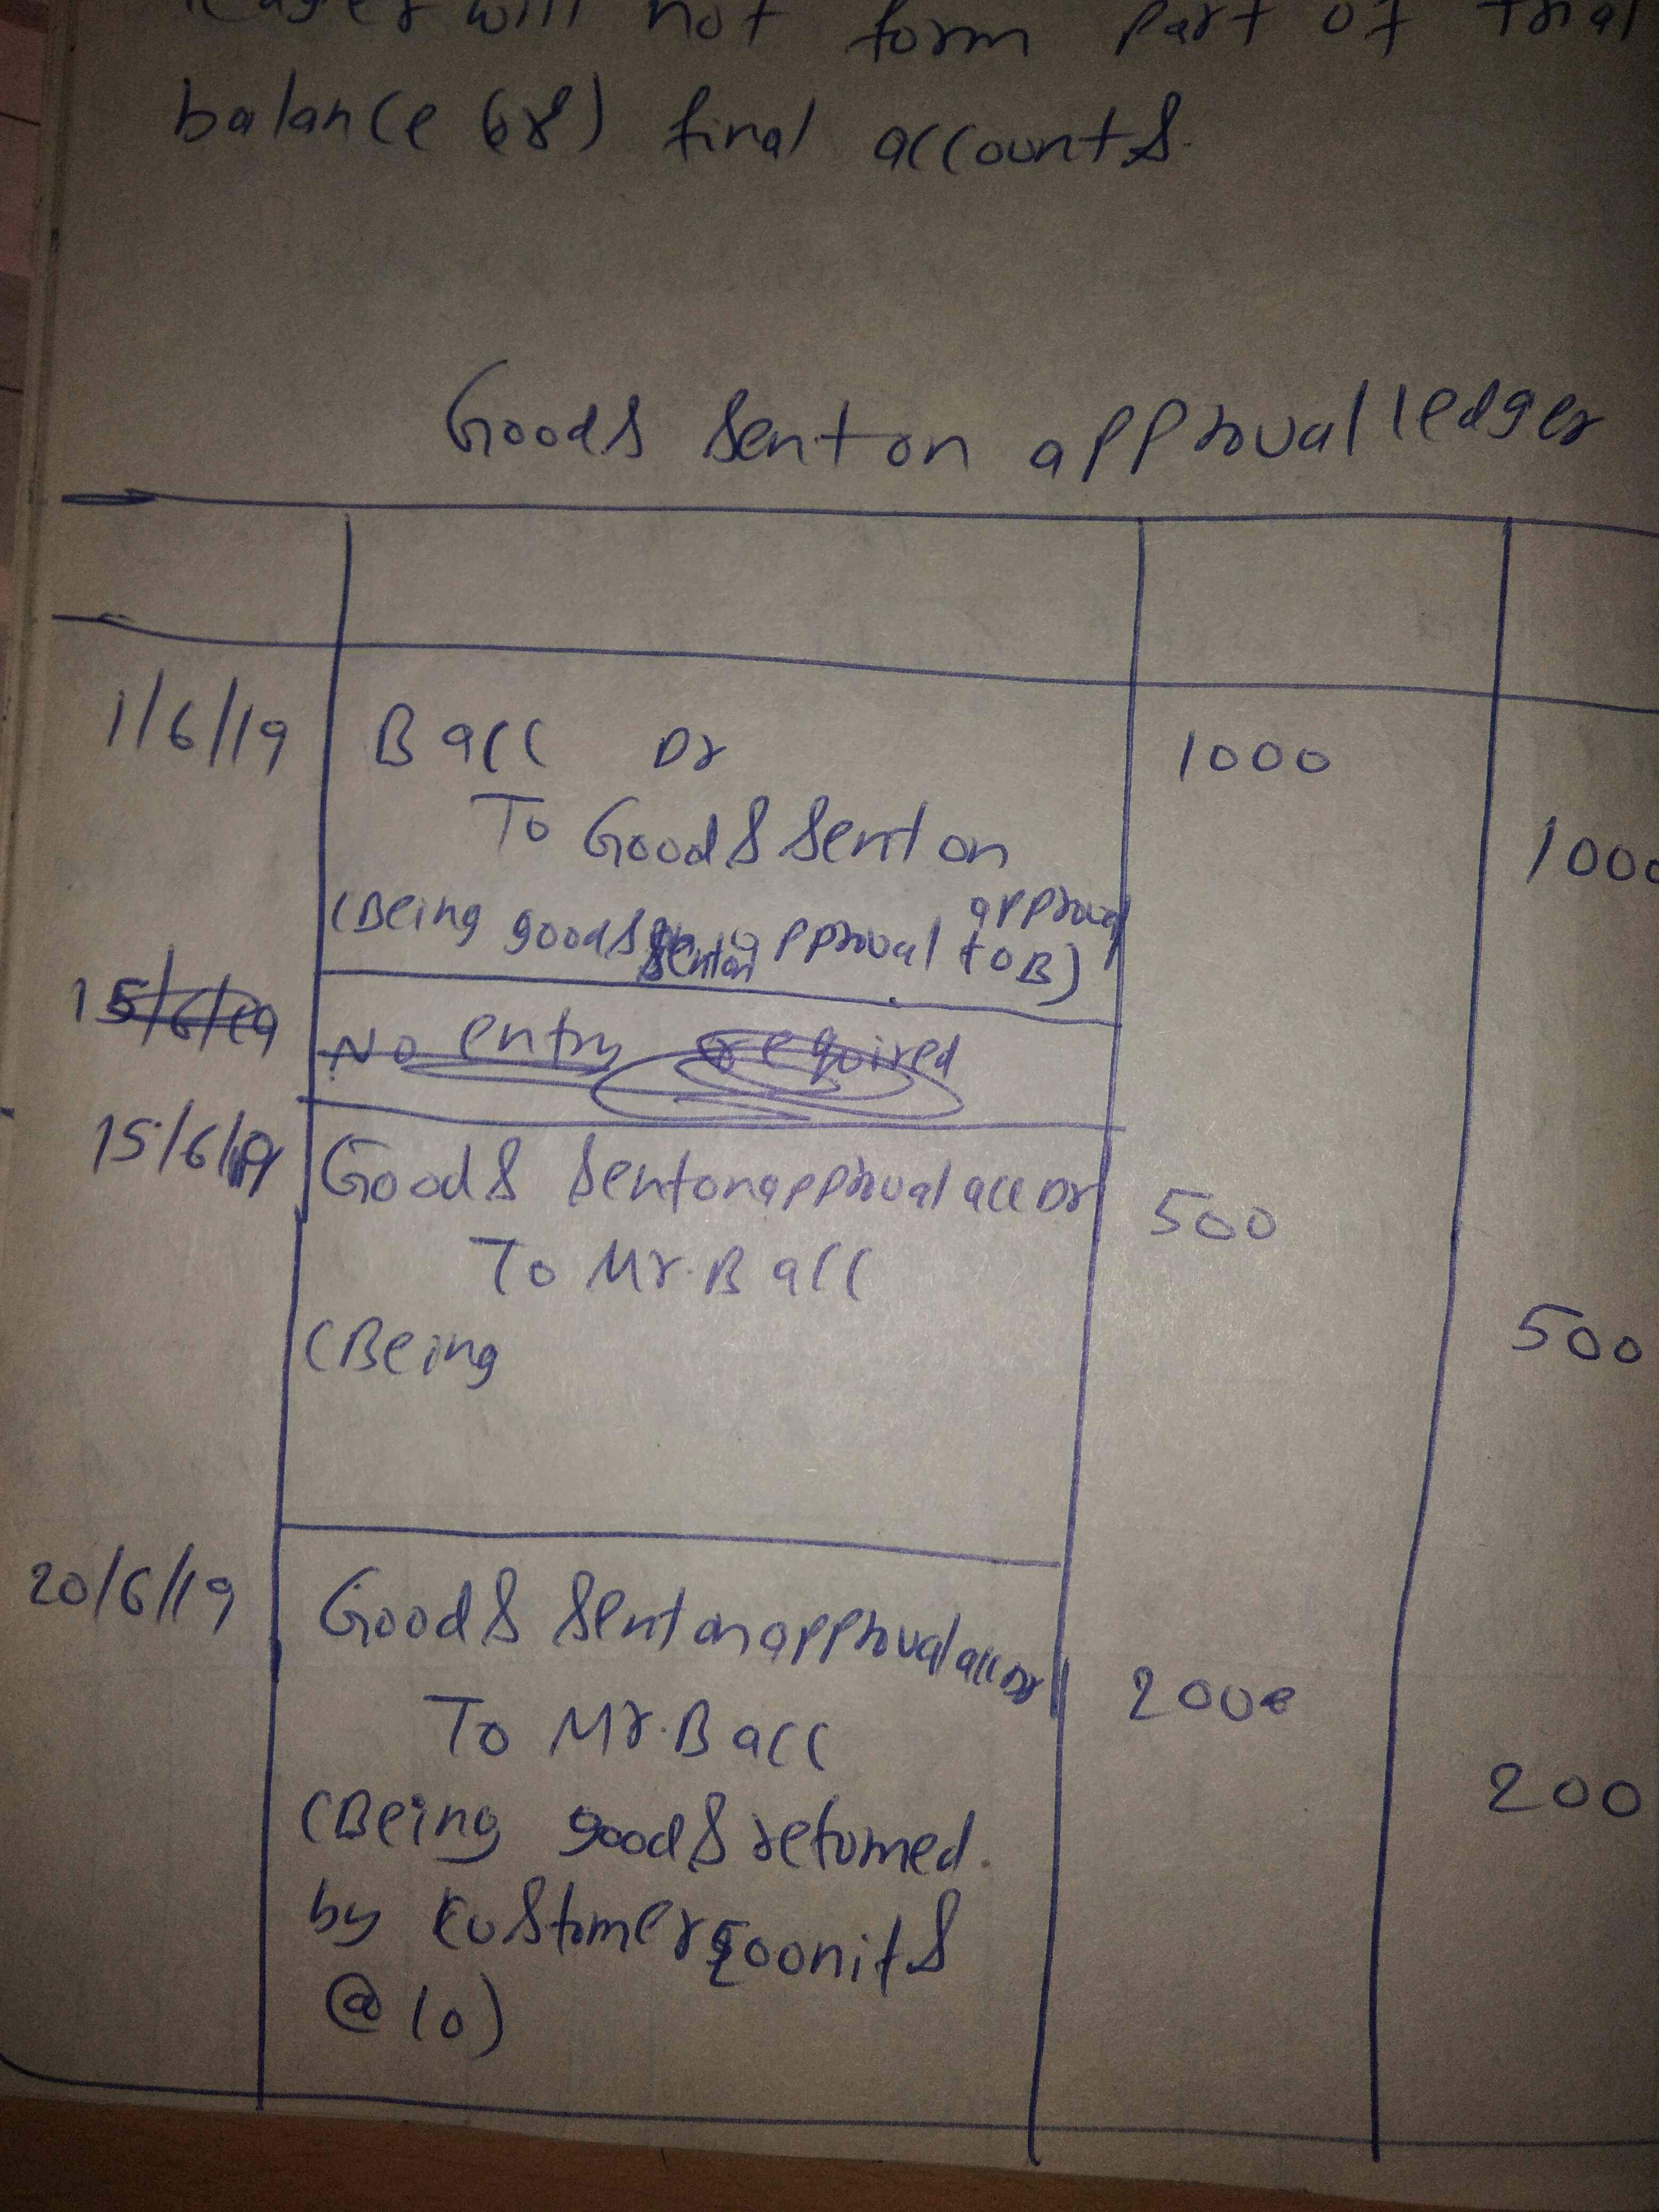 will not form part of trial
balance (or) final accounts.
Goods sent on approval ledger
1/6/19 B acc Dr 1000
To Goods sent on 1000
approval
(Being goods sent on approval to B)
15/6/19
No entry required
15/6/19 Goods sent on approval acc Dr 500
To Mr. B acc 500
(Being
20/6/19 Goods sent on approval acc Dr 2000
To Mr. B acc 200
(Being goods returned.
by customer units
@ 10)